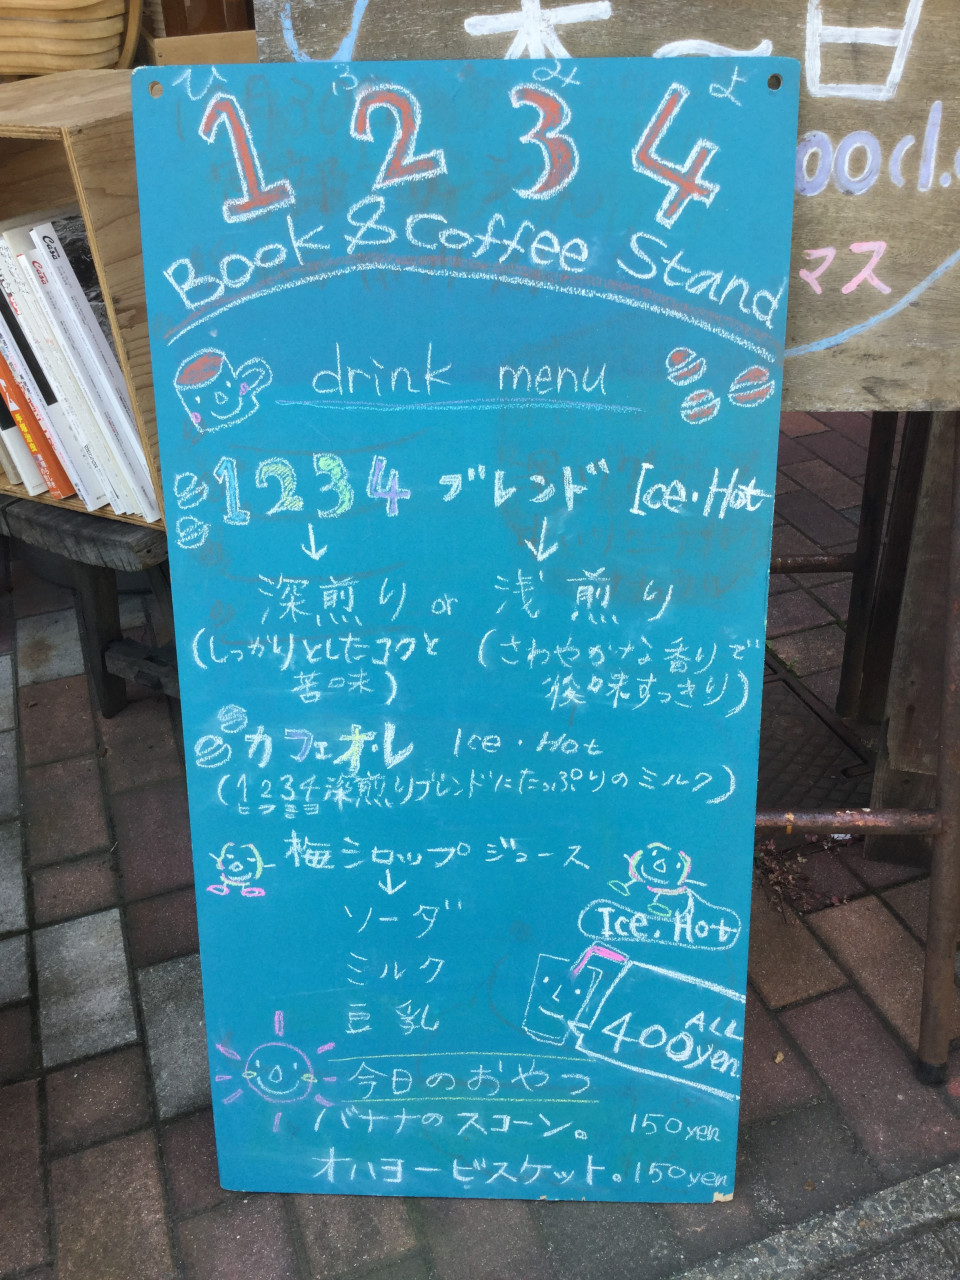 木～日
ood.
マス
ひ ふ み よ
1 2 3 4
Book & Coffee Stand
drink menu
1234 ブレンド Ice・Hot
↓ ↓
深煎り or 浅煎り
(しっかりとしたコクと
苦味)
(さわやかな香りで
後味すっきり)
カフェオ・レ Ice・Hot
(1234深煎りブレンドにたっぷりのミルク)
ヒフミヨ
梅シロップジュース
↓
ソーダ
ミルク
豆乳
Ice・Hot
ALL
400yen
今日のおやつ
バナナのスコーン。 150yen
オハヨービスケット。150yen
Casa
Casa